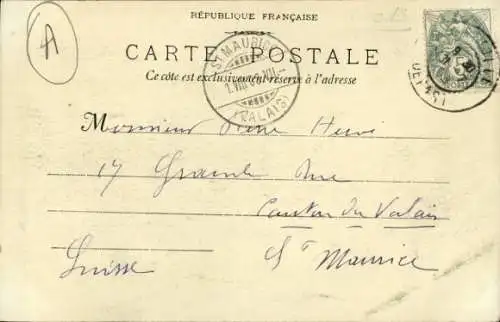 RÉPUBLIQUE FRANÇAISE
A
CARTE POSTALE
Ce côté est exclusivement réservé à l'adresse
ST MAURICE
(VALAIS)
5
Monsieur Henri
17 Grande Rue
Canton du Valais
Suisse St Maurice